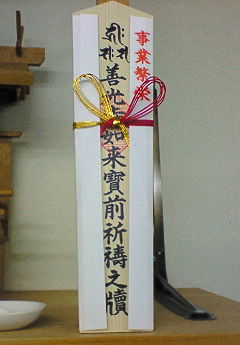 事業繁栄
善光寺如来寶前祈祷之牘